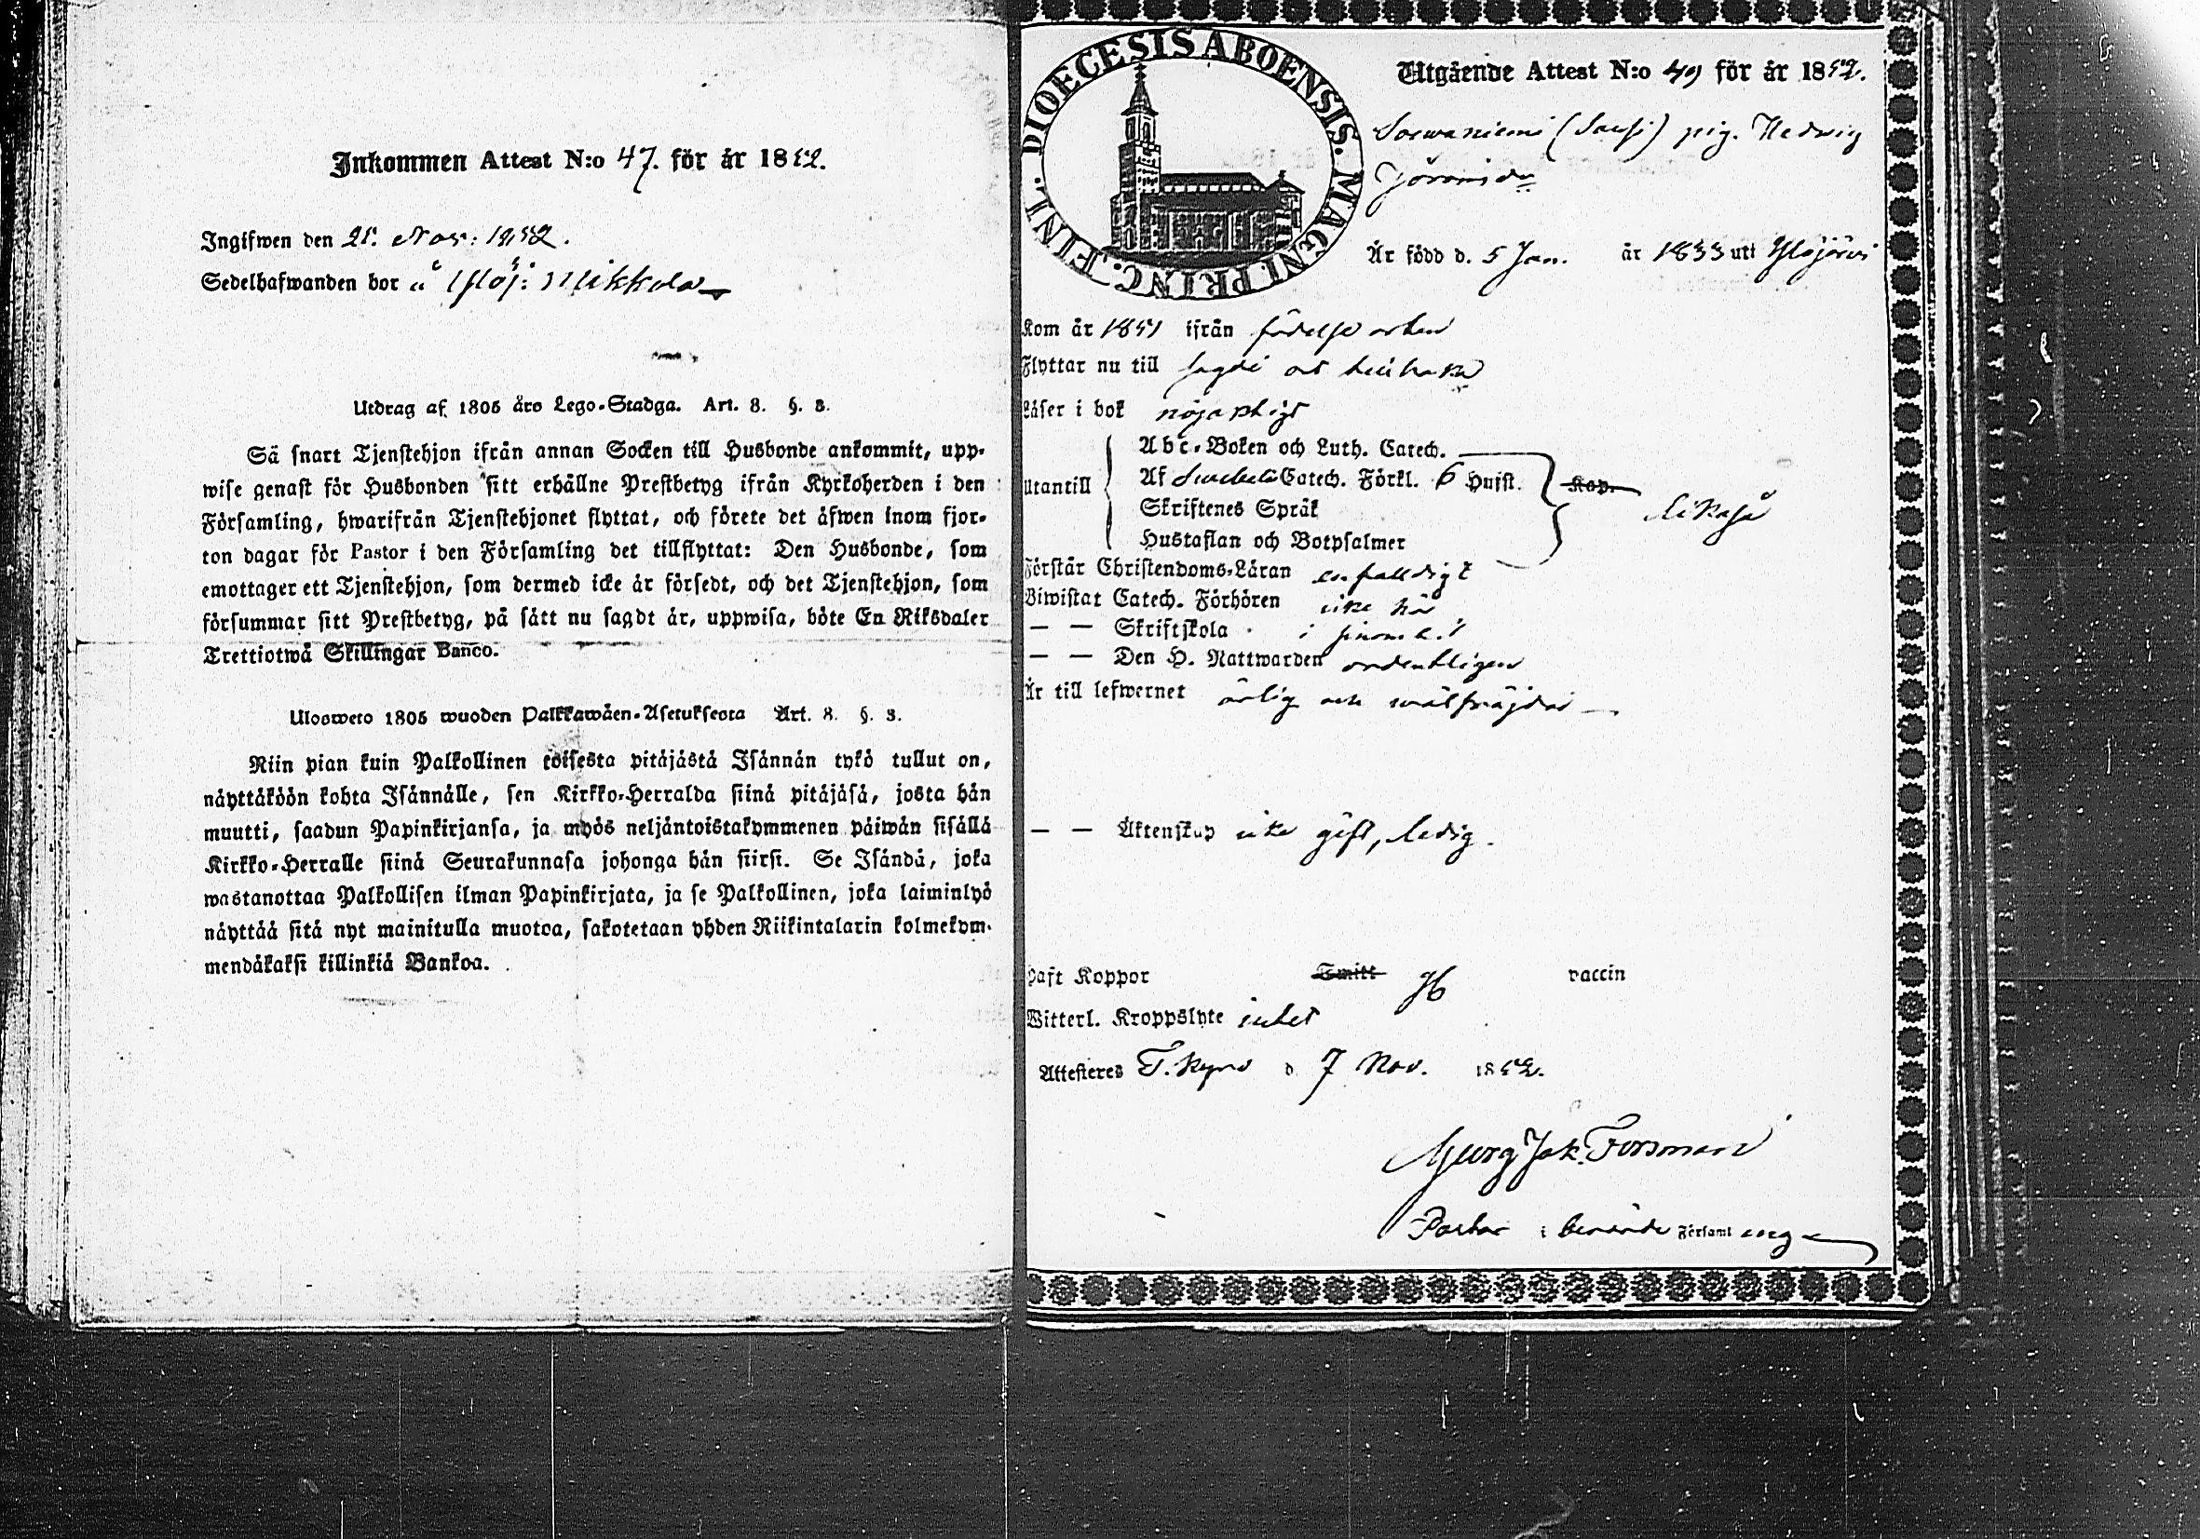 Inkommen Attest N:o 47. för år 1852.
Ingifwen den 21. Nov: 1852.
Sedelhafwanden bor å Ylöj: Mikkola
Utdrag af 1805 åro Lego-Stadga. Art. 8. §. 3.
Så snart Tjenstehjon ifrån annan Socken till Husbonde ankommit, upp-
wise genast för Husbonden sitt erhållne Prestbetyg ifrån Kyrkoherden i den
Församling, hwarifrån Tjenstehjonet flyttat, och förete det åfwen inom fjor-
ton dagar för Pastor i den Församling det tillflyttat: Den Husbonde, som
emottager ett Tjenstehjon, som dermed icke är försedt, och det Tjenstehjon, som
försummar sitt Prestbetyg, på sått nu sagdt är, uppwisa, böte En Riksdaler
Trettiotwå Skillingar Banco.
Ulosweto 1805 wuoden Palkkawäen-Asetuksesta Art. 8. §. 3.
Niin pian kuin Palkollinen toisesta pitäjästä Isännän tykö tullut on,
näyttäköön kohta Isännälle, sen Kirkko-Herralda siinä pitäjäsä, josta hän
muutti, saadun Papinkirjansa, ja myös neljäntoistakymmenen päiwän sisällä
Kirkko-Herralle siinä Seurakunnasa johonga hän siirsi. Se Isändä, joka
wastanottaa Palkollisen ilman Papinkirjata, ja se Palkollinen, joka laiminlyö
näyttää sitä nyt mainitulla muotoa, sakotetaan yhden Riikintalarin kolmekym-
mendäkaksi killinkiä Bankoa.
DIOECESIS ABOENSIS. MAGNI. PRINC. FINL.
Utgående Attest N:o 49 för år 1852.
Sorwaniemi (Sausi) pig. Hedwig
Jöransdr
Är född d. 5 Jan. år 1833 uti Ylöjärvi
Kom år 1851 ifrån födelse orten
Flyttar nu till sagde ort tillbaka
Läser i bok nöjaktigt
Utantill
Abc-Boken och Luth. Catech.
Af Swebelii Catech. Förkl. 6 Hufst. Kap.
Skriftenes Språk
likaså
Hustaflan och Botpsalmer
Förstår Christendoms-Läran enfaldigt
Biwistat Catech. Förhören icke här
— — Skriftskola i sinom tid
— — Den H. Nattwarden ordentligen
Är till lefwernet ärlig och wälfräjdad
— — Äktenskap icke gift, ledig.
Haft Koppor Smitt vaccin
Witterl. Kroppslyte intet
Attesteres T. Kyro d 7 Nov. 1852.
Georg Jak. Forsman
Pastor i berörde Församl ing